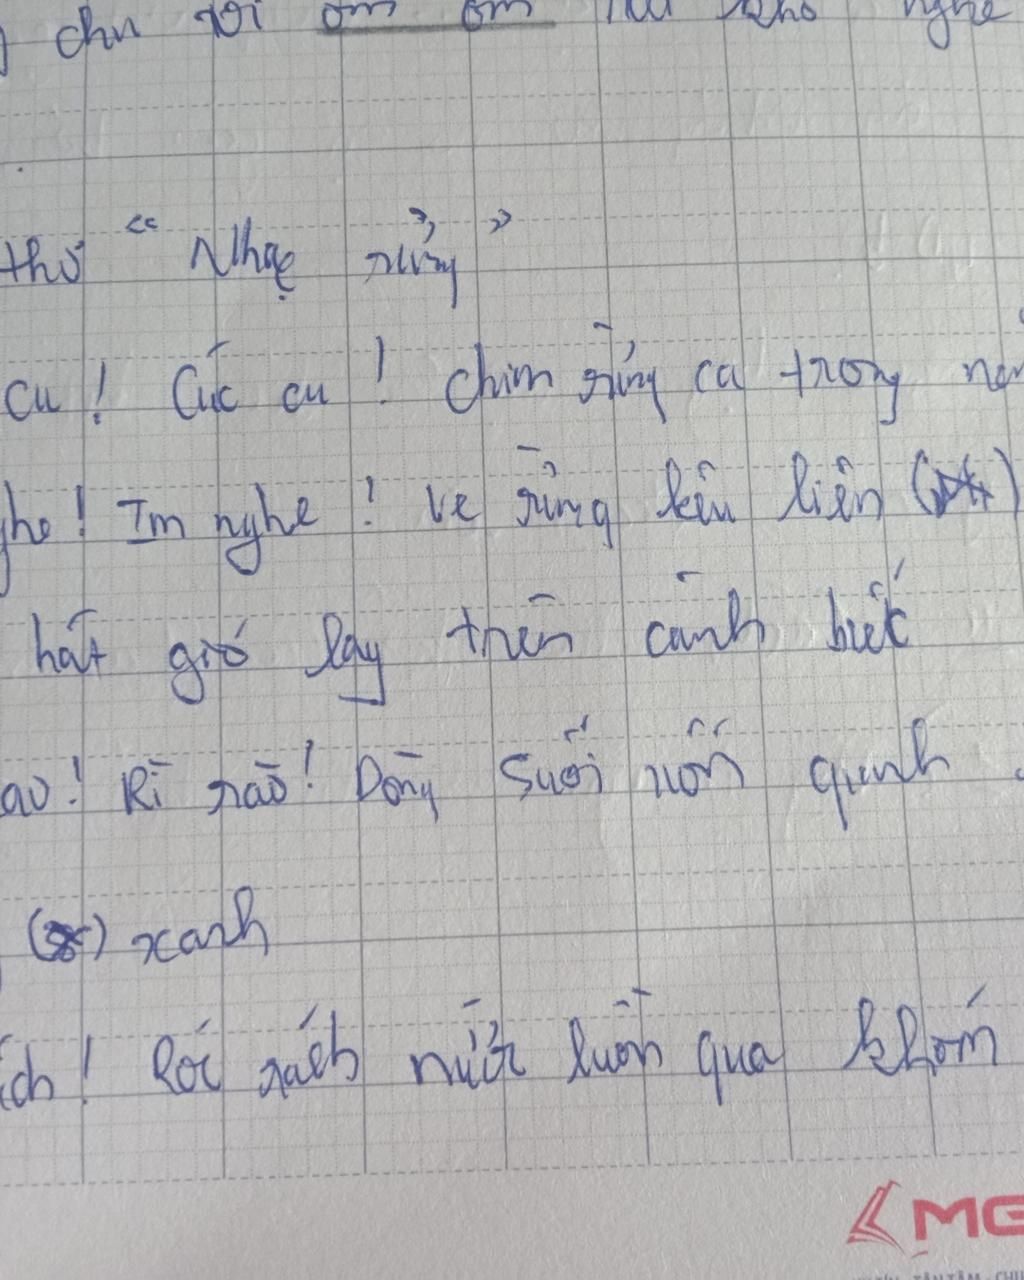 chu rồi om om
thơ "Nhạc rừng"
cu! Cúc cu! Chim rừng ca trong
nghe! Im nghe! Ve rừng kêu liên
hát gió lay trên cành biếc
rào! Rì rào! Dòng suối uốn quanh
xanh
ích! Róc rách nước luồn qua khóm
MG